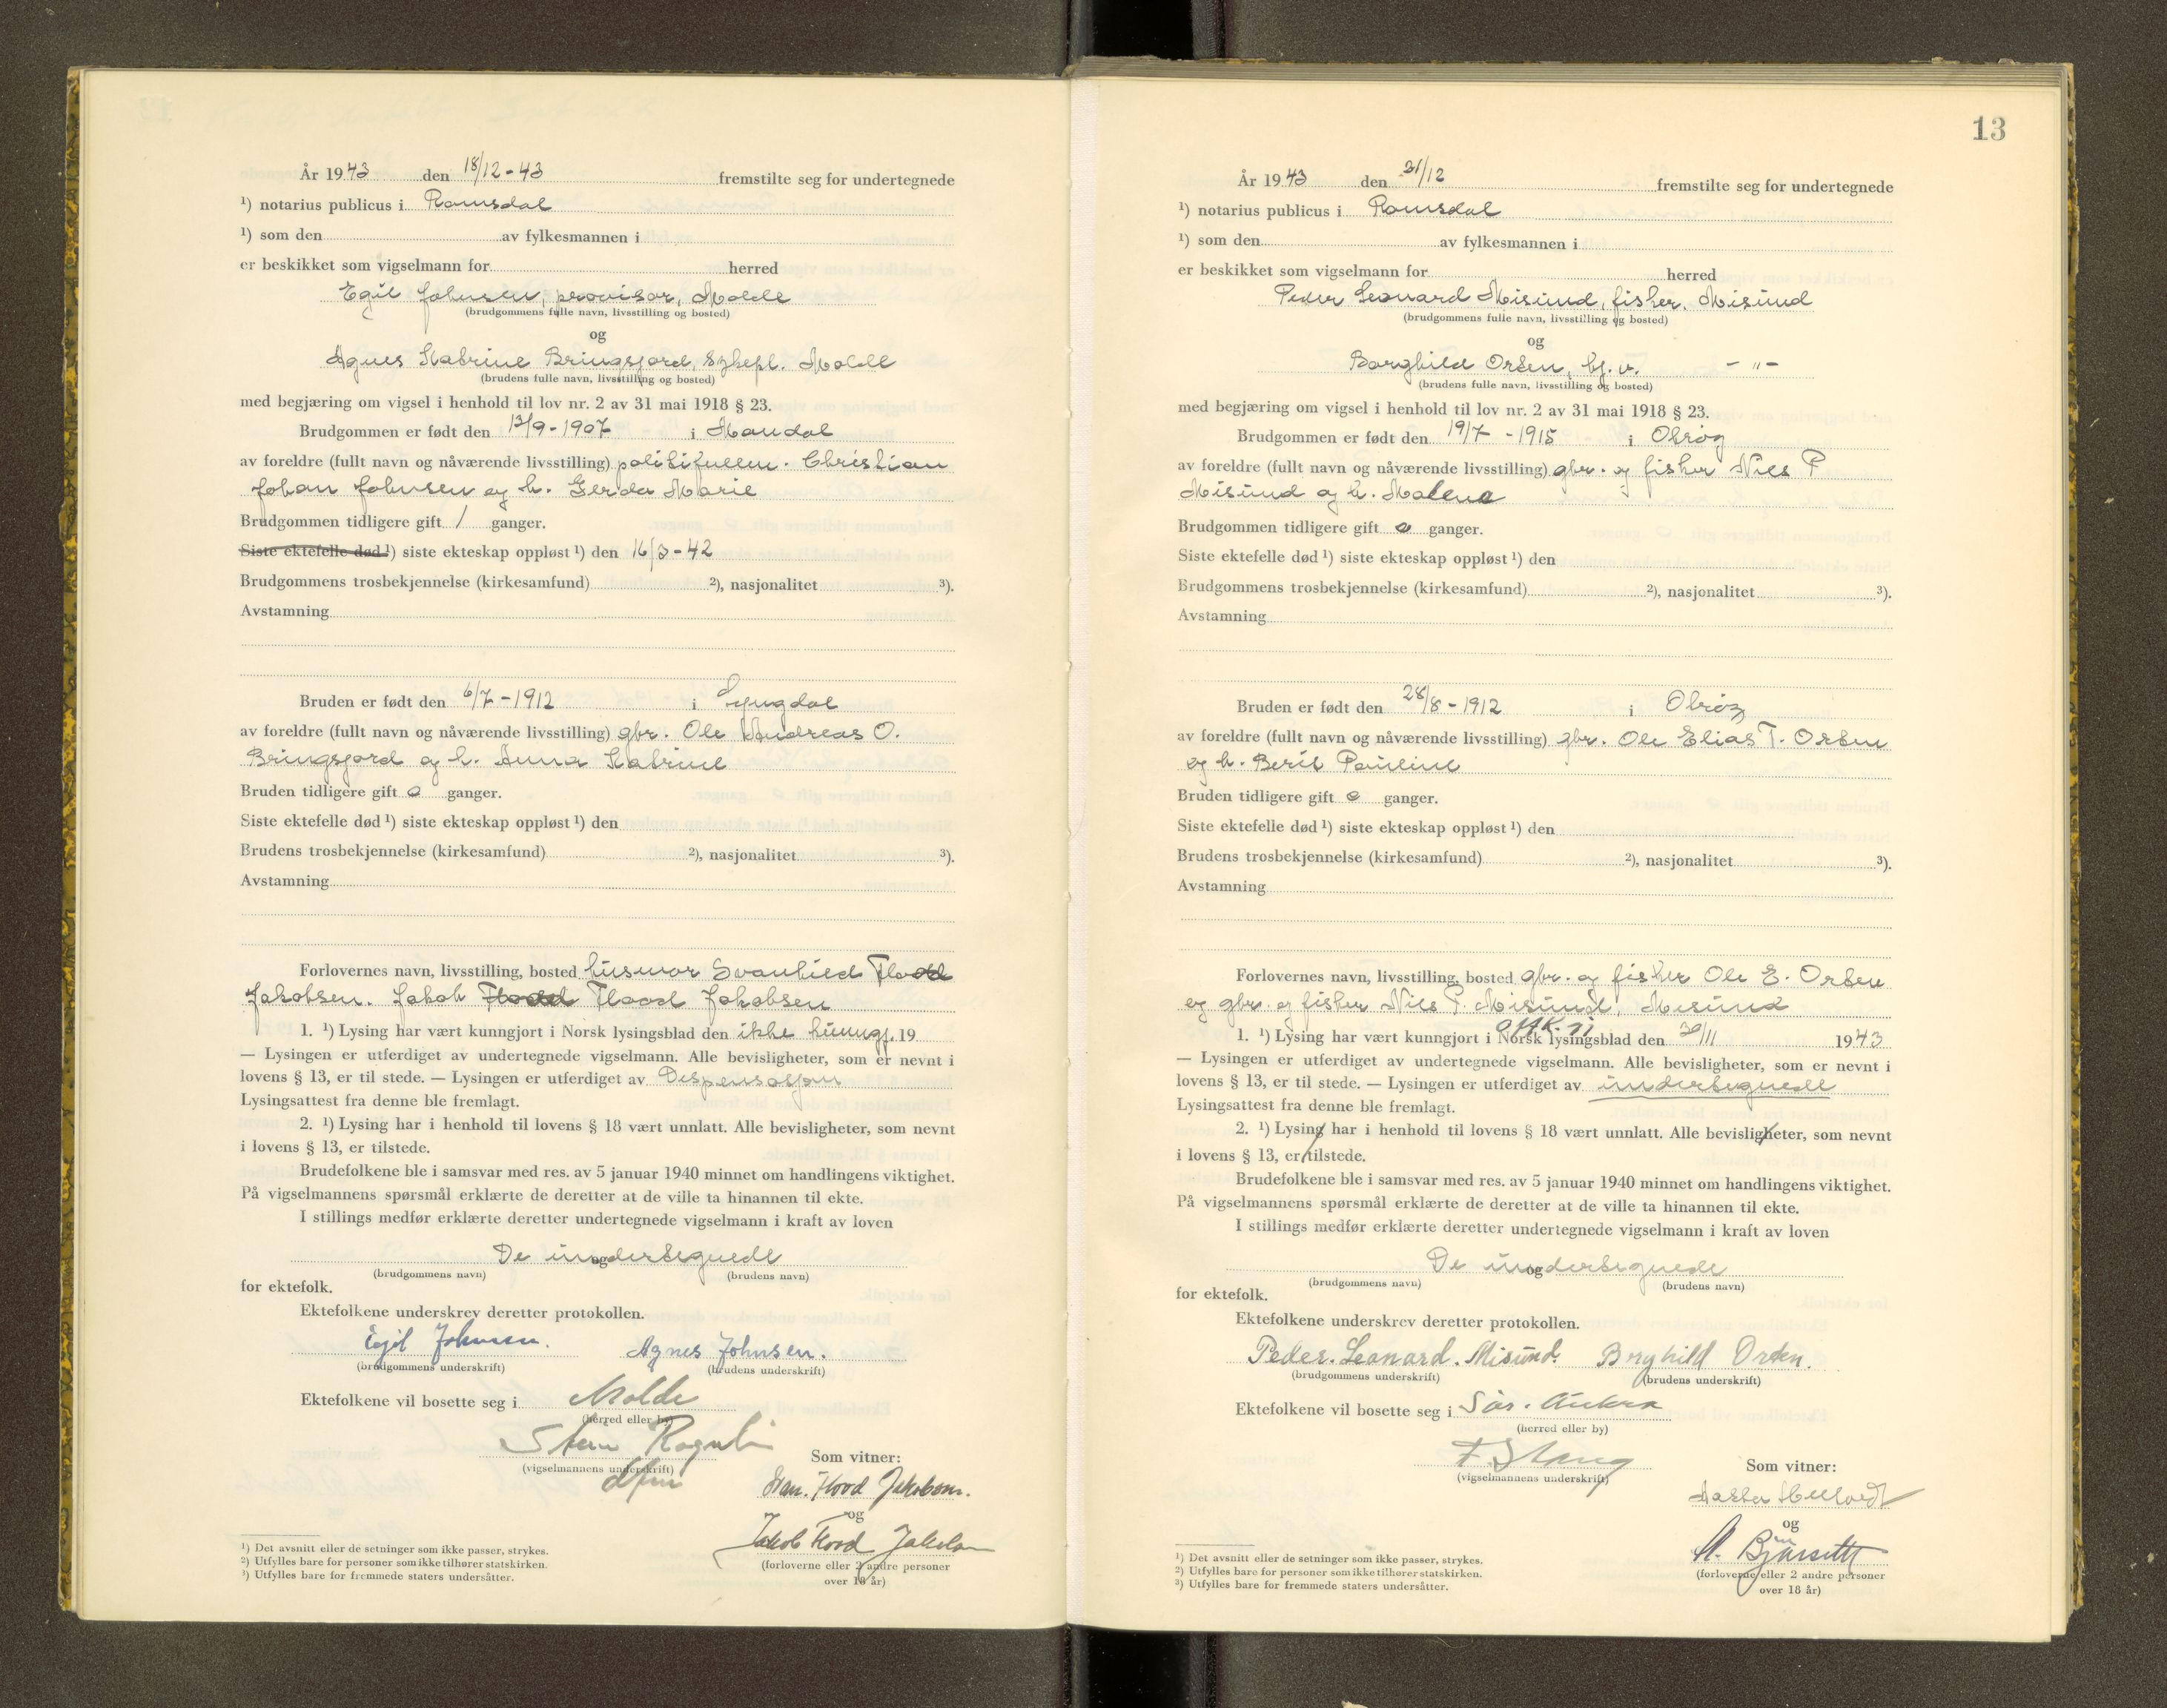 År 1943 den 18/12-43 fremstilte seg for undertegnede
¹) notarius publicus i Romsdal
¹) som den av fylkesmannen i
er beskikket som vigselmann for herred
Egil Johnsen, provisor, Molde
(brudgommens fulle navn, livsstilling og bosted)
og
Agnes Katrine Bringsjord, sykepl. Molde
(brudens fulle navn, livsstilling og bosted)
med begjæring om vigsel i henhold til lov nr. 2 av 31 mai 1918 § 23.
Brudgommen er født den 13/9-1907 i Mandal
av foreldre (fullt navn og nåværende livsstilling) politifullm. Christian
Johan Johnsen og h. Gerda Marie
Brudgommen tidligere gift 1 ganger.
Siste ektefelle død ¹) siste ekteskap oppløst ¹) den 16/3-42
Brudgommens trosbekjennelse (kirkesamfund) ²), nasjonalitet ³).
Avstamning
Bruden er født den 6/7-1912 i Lyngdal
av foreldre (fullt navn og nåværende livsstilling) gbr. Ole Andreas O.
Bringsjord og h. Anna Katrine
Bruden tidligere gift 0 ganger.
Siste ektefelle død ¹) siste ekteskap oppløst ¹) den
Brudens trosbekjennelse (kirkesamfund) ²), nasjonalitet ³).
Avstamning
Forlovernes navn, livsstilling, bosted husmor Svanhild Flood
Jakobsen. Jakob Flood Jakobsen
1. ¹) Lysing har vært kunngjort i Norsk lysingsblad den ikke kunngj. 19
— Lysingen er utferdiget av undertegnede vigselmann. Alle bevisligheter, som er nevnt i
lovens § 13, er til stede. — Lysingen er utferdiget av Dispensasjon
Lysingsattest fra denne ble fremlagt.
2. ¹) Lysing har i henhold til lovens § 18 vært unnlatt. Alle bevisligheter, som nevnt
i lovens § 13, er tilstede.
Brudefolkene ble i samsvar med res. av 5 januar 1940 minnet om handlingens viktighet.
På vigselmannens spørsmål erklærte de deretter at de ville ta hinannen til ekte.
I stillings medfør erklærte deretter undertegnede vigselmann i kraft av loven
De undertegnede
og
(brudgommens navn) (brudens navn)
for ektefolk.
Ektefolkene underskrev deretter protokollen.
Egil Johnsen. Agnes Johnsen.
(brudgommens underskrift) (brudens underskrift)
Ektefolkene vil bosette seg i Molde
(herred eller by)
(vigselmannens underskrift)
Som vitner:
Svan. Flood Jakobsen.
og
Jakob Flood Jakobsen
(forloverne eller 2 andre personer
over 18 år)
¹) Det avsnitt eller de setninger som ikke passer, strykes.
²) Utfylles bare for personer som ikke tilhører statskirken.
³) Utfylles bare for fremmede staters undersåtter.
13
År 1943 den 31/12 fremstilte seg for undertegnede
¹) notarius publicus i Romsdal
¹) som den av fylkesmannen i
er beskikket som vigselmann for herred
Peder Leonard Misund, fisker, Misund
(brudgommens fulle navn, livsstilling og bosted)
og
Borghild Orten, hj. v. - " -
(brudens fulle navn, livsstilling og bosted)
med begjæring om vigsel i henhold til lov nr. 2 av 31 mai 1918 § 23.
Brudgommen er født den 19/7 - 1915 i Otrøy
av foreldre (fullt navn og nåværende livsstilling) gbr. og fisker Nils P
Misund og h. Malene
Brudgommen tidligere gift 0 ganger.
Siste ektefelle død ¹) siste ekteskap oppløst ¹) den
Brudgommens trosbekjennelse (kirkesamfund) ²), nasjonalitet ³).
Avstamning
Bruden er født den 28/8-1912 i Otrøy
av foreldre (fullt navn og nåværende livsstilling) gbr. Ole Elias T. Orten
og h. Berit Pauline
Bruden tidligere gift 0 ganger.
Siste ektefelle død ¹) siste ekteskap oppløst ¹) den
Brudens trosbekjennelse (kirkesamfund) ²), nasjonalitet ³).
Avstamning
Forlovernes navn, livsstilling, bosted gbr. og fisker Ole E. Orten
og gbr. og fisker Nils P. Misund, Misund
1. ¹) Lysing har vært kunngjort i Norsk lysingsblad den 30/11 1943
— Lysingen er utferdiget av undertegnede vigselmann. Alle bevisligheter, som er nevnt i
lovens § 13, er til stede. — Lysingen er utferdiget av undertegnede
Lysingsattest fra denne ble fremlagt.
2. ¹) Lysing har i henhold til lovens § 18 vært unnlatt. Alle bevisligheter, som nevnt
i lovens § 13, er tilstede.
Brudefolkene ble i samsvar med res. av 5 januar 1940 minnet om handlingens viktighet.
På vigselmannens spørsmål erklærte de deretter at de ville ta hinannen til ekte.
I stillings medfør erklærte deretter undertegnede vigselmann i kraft av loven
De undertegnede
og
(brudgommens navn) (brudens navn)
for ektefolk.
Ektefolkene underskrev deretter protokollen.
Peder. Leonard. Misund. Borghild Orten.
(brudgommens underskrift) (brudens underskrift)
Ektefolkene vil bosette seg i Sør-Aukra
(herred eller by)
F. Stang
(vigselmannens underskrift)
Som vitner:
og
(forloverne eller 2 andre personer
over 18 år)
¹) Det avsnitt eller de setninger som ikke passer, strykes.
²) Utfylles bare for personer som ikke tilhører statskirken.
³) Utfylles bare for fremmede staters undersåtter.